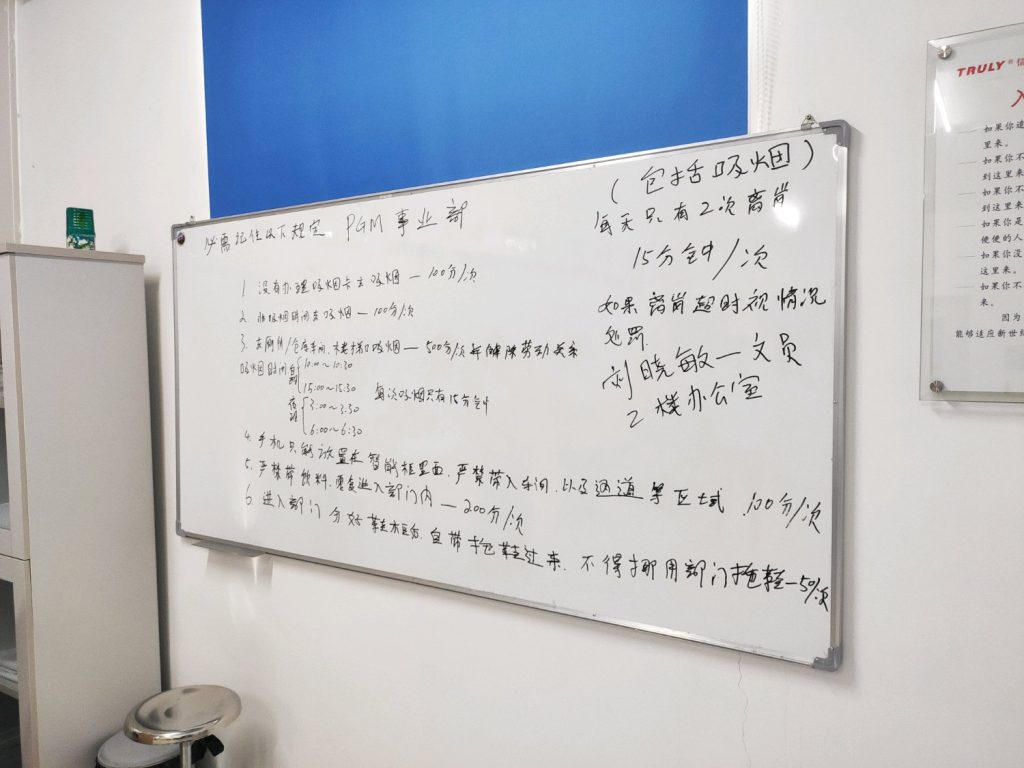 必需记住以下规定 PGM 事业部
1. 没有办理吸烟卡去吸烟 — 100分/次
2. 非吸烟时间去吸烟 — 100分/次
3. 去厕所/仓库车间、木楼梯口吸烟 — 500分/次并解除劳动关系
吸烟时间 白班 10:00～10:30
15:00～15:30 每次吸烟只有15分钟
夜班 3:00～3:30
6:00～6:30
4. 手机只能放置在智能柜里面、严禁带入车间、以及通道等区域 100分/次
5. 严禁带饮料、零食进入部门内 — 200分/次
6. 进入部门分好鞋柜后、自带拖鞋过来、不得挪用部门拖鞋—50/次
(包括吸烟)
每天只有2次离岗
15分钟/次
如果离岗超时视情况
处罚
刘晓敏—文员
2楼办公室
TRULY® 信
入
如果你
里来。
如果你不
到这里来
如果你不
到这里来
如果你是
便使的人
如果你没
这里来。
如果你不
来。
因为
能够适应新世纪